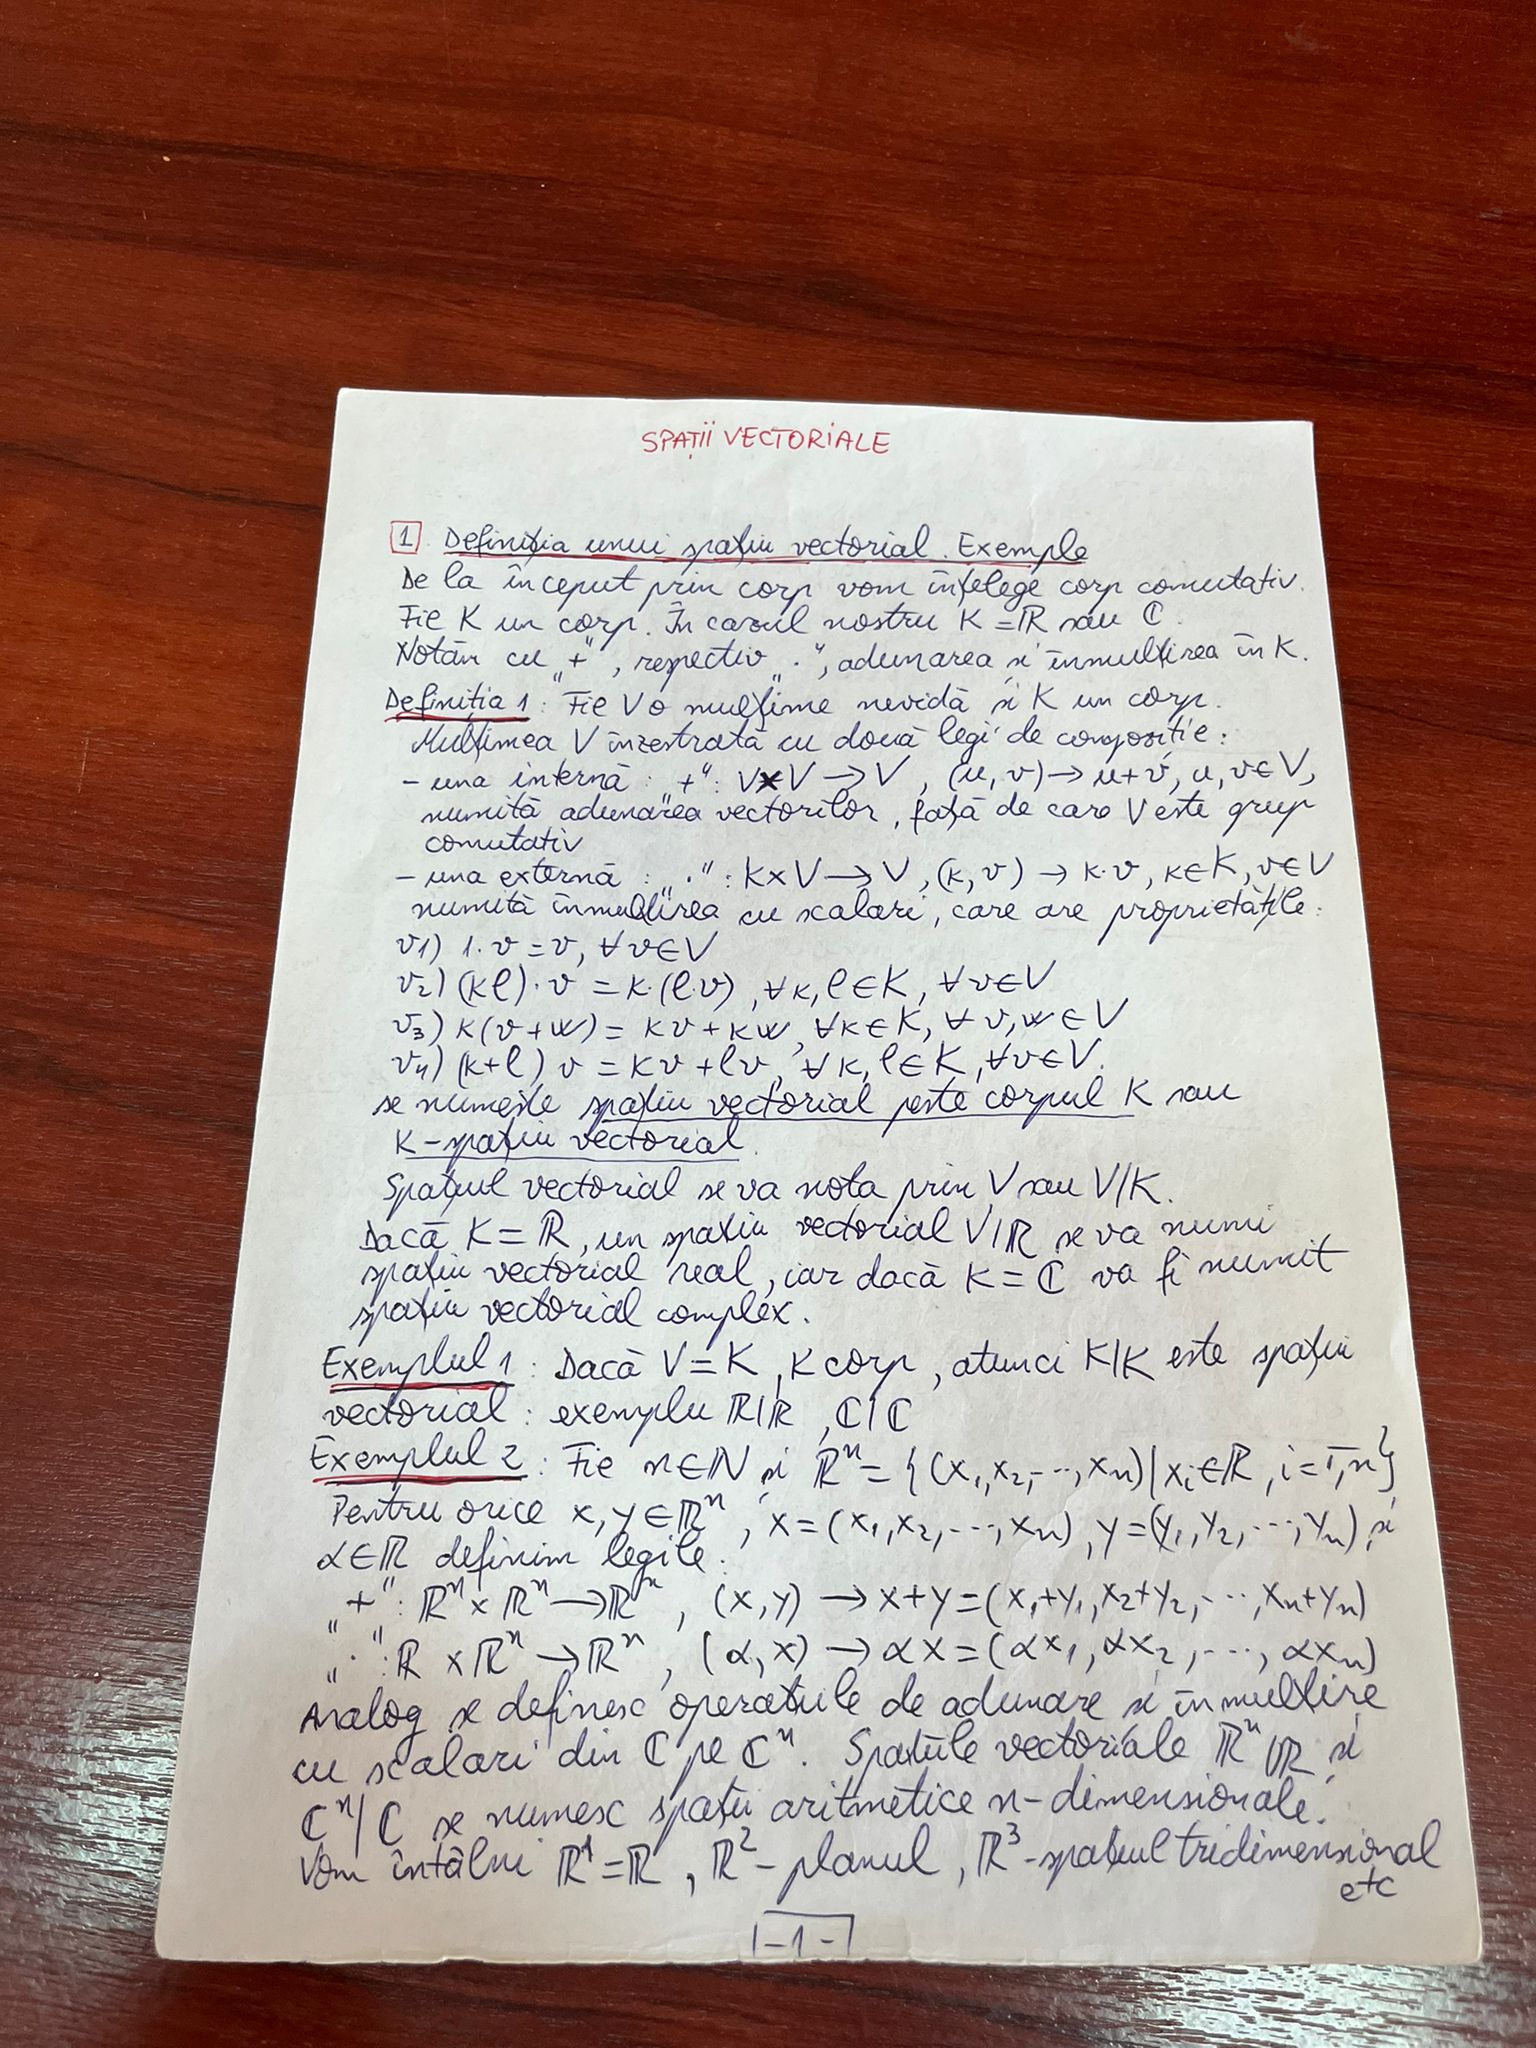 SPAȚII VECTORIALE
1. Definiția unui spațiu vectorial. Exemple
De la început prin corp vom înțelege corp comutativ.
Fie K un corp. În cazul nostru K = ℝ sau ℂ.
Notăm cu „+", respectiv „·", adunarea și înmulțirea în K.
Definiția 1: Fie V o mulțime nevidă și K un corp.
Mulțimea V înzestrată cu două legi de compoziție:
- una internă: „+": V×V → V, (u, v) → u+v, u, v ∈ V,
numită adunarea vectorilor, față de care V este grup
comutativ
- una externă: „·": K×V → V, (k, v) → k·v, k∈K, v∈V
numită înmulțirea cu scalari, care are proprietățile:
v1) 1·v = v, ∀ v∈V
v2) (kl)·v = k·(l·v), ∀ k, l ∈ K, ∀ v ∈ V
v3) k(v+w) = kv + kw, ∀ k ∈ K, ∀ v, w ∈ V
v4) (k+l) v = kv + lv, ∀ k, l ∈ K, ∀ v ∈ V.
se numește spațiu vectorial peste corpul K sau
K-spațiu vectorial.
Spațiul vectorial se va nota prin V sau V/K.
Dacă K = ℝ, un spațiu vectorial V/ℝ se va numi
spațiu vectorial real, iar dacă K = ℂ va fi numit
spațiu vectorial complex.
Exemplul 1: Dacă V = K, K corp, atunci K/K este spațiu
vectorial: exemplu ℝ/ℝ, ℂ/ℂ
Exemplul 2: Fie n∈ℕ și ℝⁿ = {(x₁, x₂, ..., xₙ) | xᵢ∈ℝ, i = 1,n}
Pentru orice x, y ∈ ℝⁿ, x = (x₁, x₂, ..., xₙ), y = (y₁, y₂, ..., yₙ) și
α∈ℝ definim legile:
„+": ℝⁿ × ℝⁿ → ℝⁿ, (x, y) → x+y = (x₁+y₁, x₂+y₂, ..., xₙ+yₙ)
„·": ℝ × ℝⁿ → ℝⁿ, (α, x) → αx = (αx₁, αx₂, ..., αxₙ)
Analog se definesc operațiile de adunare și înmulțire
cu scalari din ℂ pe ℂⁿ. Spațiile vectoriale ℝⁿ/ℝ și
ℂⁿ/ℂ se numesc spații aritmetice n-dimensionale.
Vom întâlni ℝ¹ = ℝ, ℝ² - planul, ℝ³ - spațiul tridimensional
etc
-1-